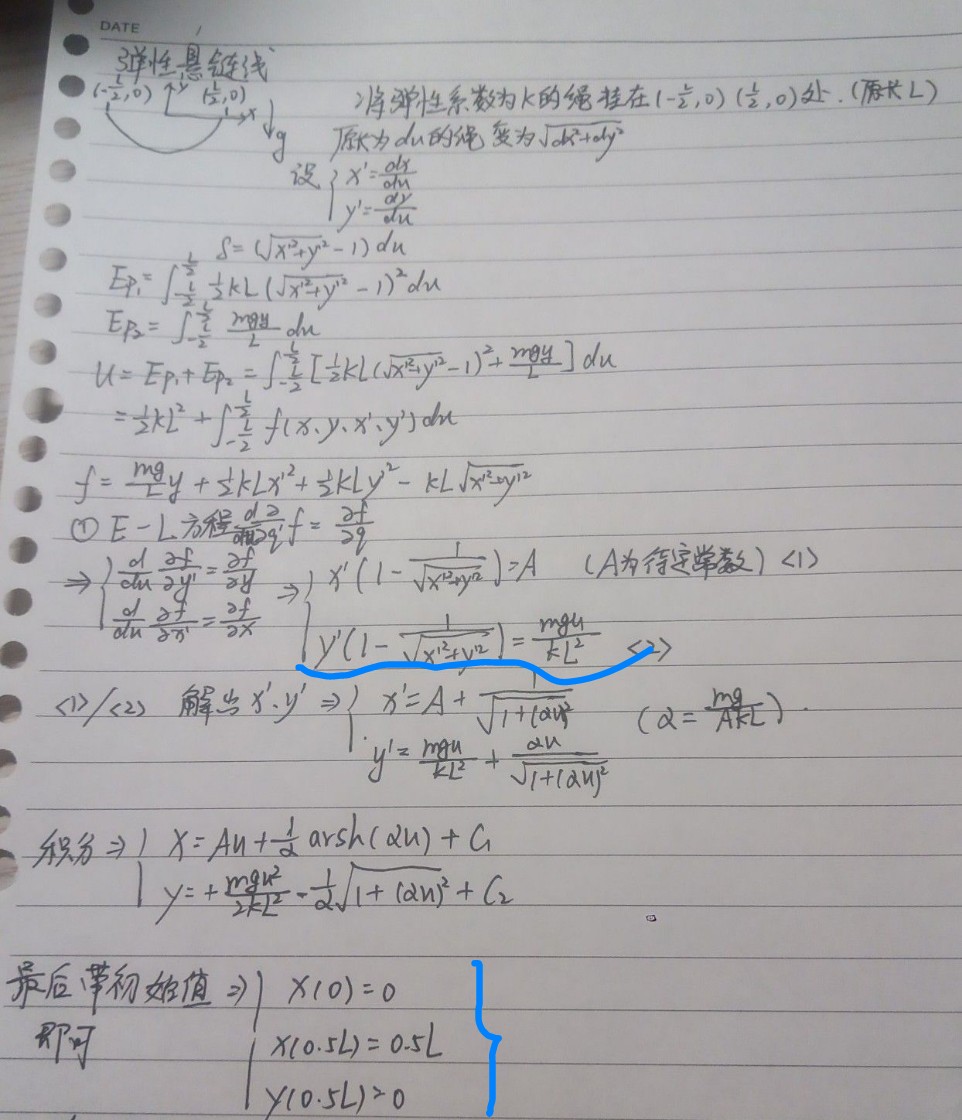 DATE
弹性悬链线
(-L/2,0) y (L/2,0) x g
将弹性系数为k的绳挂在(-L/2,0)(L/2,0)处.(原长L)
原长为du的绳变为√(dx²+dy²)
设 { x'=dx/du
y'=dy/du
δ=(√(x'²+y'²)-1)du
Ep₁=∫_{-L/2}^{L/2} ½kL(√(x'²+y'²)-1)²du
Ep₂=∫_{-L/2}^{L/2} mgy/L du
U=Ep₁+Ep₂=∫_{-L/2}^{L/2}[½kL(√(x'²+y'²)-1)²+mgy/L]du
=½kL²+∫_{-L/2}^{L/2} f(x、y、x'、y')du
f=mg/L y+½kLx'²+½kLy'²-kL√(x'²+y'²)
① E-L方程 d/du ∂/∂q' f=∂f/∂q
⇒ { d/du ∂f/∂y'=∂f/∂y ⇒ { x'(1-1/√(x'²+y'²))=A (A为待定常数) <1>
d/du ∂f/∂x'=∂f/∂x
y'(1-1/√(x'²+y'²))=mgu/kL² <2>
<1>/<2> 解出x'、y' ⇒ { x'=A+1/√(1+(αu)²) (α=mg/AkL).
y'=mgu/kL²+αu/√(1+(αu)²)
积分⇒ { x=Au+1/α arsh(αu)+C₁
y=+mgu²/2kL²-1/α√(1+(αu)²)+C₂
最后带初始值⇒ { x(0)=0
即可 x(0.5L)=0.5L
y(0.5L)=0